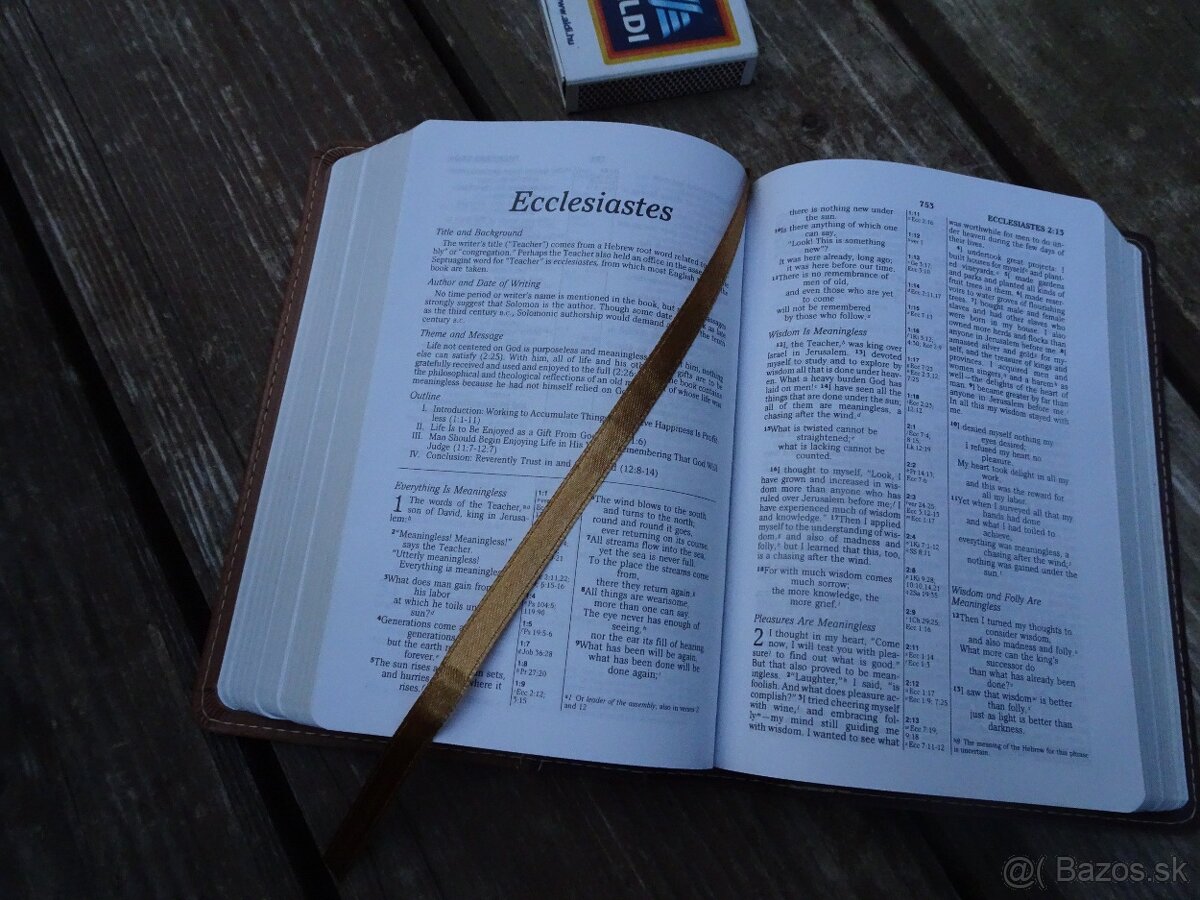 www.aldi.hu
LDI
Ecclesiastes
Title and Background
The writer's title ("Teacher") comes from a Hebrew root word related to
bly" or "congregation." Perhaps the Teacher also held an office in the
Septuagint word for "Teacher" is ecclesiastes, from which most English
book are taken.
Author and Date of Writing
No time period or writer's name is mentioned in the book, but
strongly suggest that Solomon is the author. Though some date
as the third century B.C., Solomonic authorship would demand
century B.C.
Theme and Message
Life not centered on God is purposeless and meaningless. him, nothing
else can satisfy (2:25). With him, all of life and his gifts are to be
gratefully received and used and enjoyed to the full (2:26 book contains
the philosophical and theological reflections of an old of whose life was
meaningless because he had not himself relied on
Outline
I. Introduction: Working to Accumulate Happiness Is Profit-
less (1:1-11)
II. Life Is to Be Enjoyed as a Gift From 1:6)
III. Man Should Begin Enjoying Life in His Remembering That God Will
Judge (11:7-12:7)
IV. Conclusion: Reverently Trust in and (12:8-14)
Everything Is Meaningless
1 The words of the Teacher,
son of David, king in Jerusa-
lem:
2"Meaningless! Meaningless!"
says the Teacher.
"Utterly meaningless!
Everything is meaningless
3What does man gain from
his labor
at which he toils
sun?
4Generations come
generations
but the earth
forever.
5The sun rises sets,
and hurries where it
rises.
1:5
Ps 19:5-6
1:7
Job 36:28
1:8
Pr 27:20
1:9
Ecc 2:12;
3:15
6The wind blows to the south
and turns to the north;
round and round it goes,
ever returning on its course.
7All streams flow into the sea,
yet the sea is never full.
To the place the streams come
from,
there they return again.
8All things are wearisome,
more than one can say.
The eye never has enough of
seeing,
nor the ear its fill of hearing.
9What has been will be again,
what has been done will be
done again;
Or leader of the assembly; also in verses 2
and 12
753
ECCLESIASTES 2:13
there is nothing new under
the sun.
10Is there anything of which one
can say,
"Look! This is something
new"?
It was here already, long ago;
it was here before our time.
11There is no remembrance of
men of old,
and even those who are yet
to come
will not be remembered
by those who follow.
Wisdom Is Meaningless
12I, the Teacher, was king over
Israel in Jerusalem. 13I devoted
myself to study and to explore by
wisdom all that is done under heav-
en. What a heavy burden God has
laid on men! 14I have seen all the
things that are done under the sun;
all of them are meaningless, a
chasing after the wind.
15What is twisted cannot be
straightened;
what is lacking cannot be
counted.
16I thought to myself, "Look, I
have grown and increased in wis-
dom more than anyone who has
ruled over Jerusalem before me; I
have experienced much of wisdom
and knowledge." 17Then I applied
myself to the understanding of wis-
dom, and also of madness and
folly, but I learned that this, too,
is a chasing after the wind.
18For with much wisdom comes
much sorrow;
the more knowledge, the
more grief.
Pleasures Are Meaningless
2 I thought in my heart, "Come
now, I will test you with plea-
sure to find out what is good."
But that also proved to be mean-
ingless. 2"Laughter," I said, "is
foolish. And what does pleasure ac-
complish?" 3I tried cheering myself
with wine, and embracing fol-
ly—my mind still guiding me
with wisdom. I wanted to see what
1:11
Ecc 2:16
1:12
ver 1
1:13
Ge 3:17;
Ecc 3:10
1:14
Ecc 2:11,17
1:15
Ecc 7:13
1:16
1Ki 3:12;
4:30; Ecc 2:9
1:17
Ecc 7:23
Ecc 2:3,12;
7:25
1:18
Ecc 2:23;
12:12
2:1
Ecc 7:4;
8:15;
Lk 12:19
2:2
Pr 14:13;
Ecc 7:6
2:3
ver 24-25;
Ecc 3:12-13
Ecc 1:17
2:4
1Ki 7:1-12
SS 8:11
2:8
1Ki 9:28;
10:10,14,21
2Sa 19:35
2:9
1Ch 29:25;
Ecc 1:16
2:11
Ecc 1:14
Ecc 1:3
2:12
Ecc 1:17
Ecc 1:9; 7:25
2:13
Ecc 7:19;
9:18
Ecc 7:11-12
was worthwhile for men to do un-
der heaven during the few days of
their lives.
4I undertook great projects: I
built houses for myself and plant-
ed vineyards. 5I made gardens
and parks and planted all kinds of
fruit trees in them. 6I made reser-
voirs to water groves of flourishing
trees. 7I bought male and female
slaves and had other slaves who
were born in my house. I also
owned more herds and flocks than
anyone in Jerusalem before me. 8I
amassed silver and gold for my-
self, and the treasure of kings and
provinces. I acquired men and
women singers, and a harem as
well—the delights of the heart of
man. 9I became greater by far than
anyone in Jerusalem before me.
In all this my wisdom stayed with
me.
10I denied myself nothing my
eyes desired;
I refused my heart no
pleasure.
My heart took delight in all my
work,
and this was the reward for
all my labor.
11Yet when I surveyed all that my
hands had done
and what I had toiled to
achieve,
everything was meaningless, a
chasing after the wind;
nothing was gained under the
sun.
Wisdom and Folly Are
Meaningless
12Then I turned my thoughts to
consider wisdom,
and also madness and folly.
What more can the king's
successor do
than what has already been
done?
13I saw that wisdom is better
than folly,
just as light is better than
darkness.
The meaning of the Hebrew for this phrase
is uncertain.
@( Bazos.sk